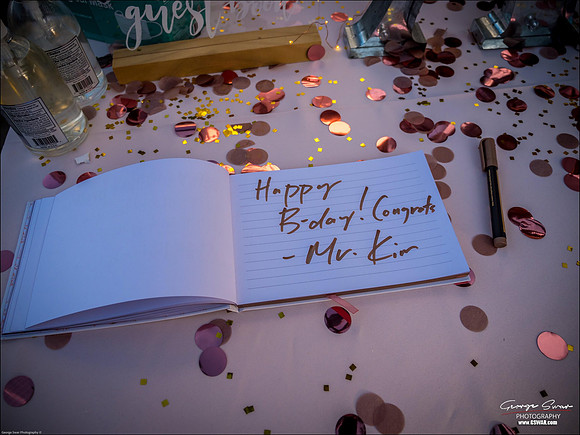 guest
Happy
B-day! Congrats
- Mr. Kim
George Swar
PHOTOGRAPHY
www.ESWAR.com
George Swar Photography ©